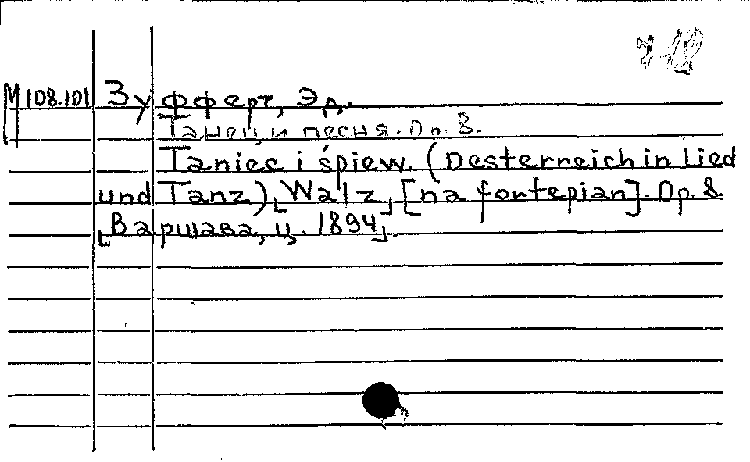 М 108.101 Зуфферт, Эд.
Танец и песня. Ор. 8.
Taniec i śpiew. (Oesterreich in Lied
und Tanz), [Walz] [na fortepian]. Op. 8.
[Варшава, ц. 1894].